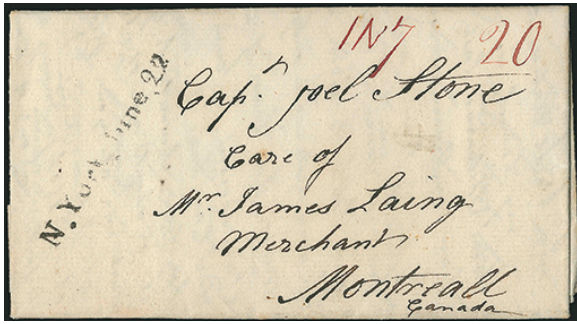 1N7 20
N. York June 22
Capt. Joel Stone
Care of
Mr. James Laing
Merchant
Montreall
Canada